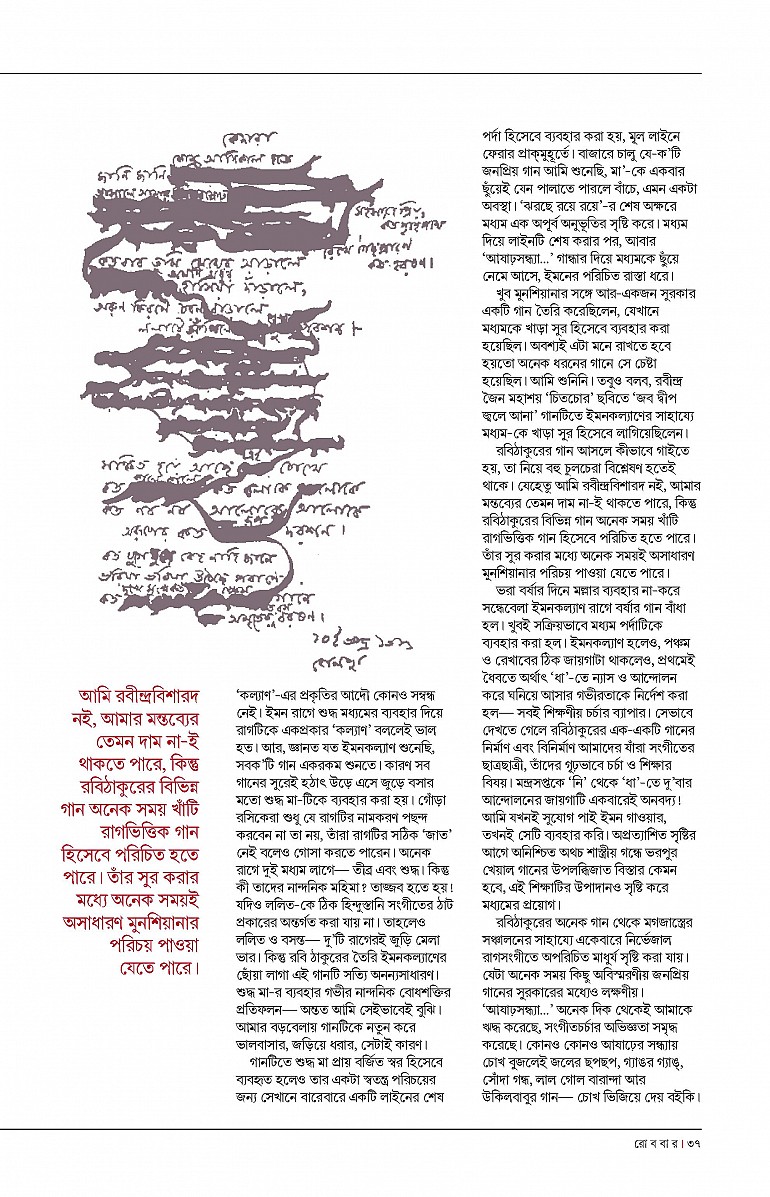 কেদারা
জানি জানি
আমি রবীন্দ্রবিশারদ
নই, আমার মন্তব্যের
তেমন দাম না-ই
থাকতে পারে, কিন্তু
রবিঠাকুরের বিভিন্ন
গান অনেক সময় খাঁটি
রাগভিত্তিক গান
হিসেবে পরিচিত হতে
পারে। তাঁর সুর করার
মধ্যে অনেক সময়ই
অসাধারণ মুনশিয়ানার
পরিচয় পাওয়া
যেতে পারে।
‘কল্যাণ’-এর প্রকৃতির আদৌ কোনও সম্বন্ধ
নেই। ইমন রাগে শুদ্ধ মধ্যমের ব্যবহার দিয়ে
রাগটিকে একপ্রকার ‘কল্যাণ’ বললেই ভাল
হত। আর, জ্ঞানত যত ইমনকল্যাণ শুনেছি,
সবক’টি গান একরকম শুনতে। কারণ সব
গানের সুরেই হঠাৎ উড়ে এসে জুড়ে বসার
মতো শুদ্ধ মা-টিকে ব্যবহার করা হয়। গোঁড়া
রসিকেরা শুধু যে রাগটির নামকরণ পছন্দ
করবেন না তা নয়, তাঁরা রাগটির সঠিক ‘জাত’
নেই বলেও গোসা করতে পারেন। অনেক
রাগে দুই মধ্যম লাগে— তীব্র এবং শুদ্ধ। কিন্তু
কী তাদের নান্দনিক মহিমা? তাজ্জব হতে হয়!
যদিও ললিত-কে ঠিক হিন্দুস্তানি সংগীতের ঠাট
প্রকারের অন্তর্গত করা যায় না। তাহলেও
ললিত ও বসন্ত— দু’টি রাগেরই জুড়ি মেলা
ভার। কিন্তু রবি ঠাকুরের তৈরি ইমনকল্যাণের
ছোঁয়া লাগা এই গানটি সত্যি অনন্যসাধারণ।
শুদ্ধ মা-র ব্যবহার গভীর নান্দনিক বোধশক্তির
প্রতিফলন— অন্তত আমি সেইভাবেই বুঝি।
আমার বড়বেলায় গানটিকে নতুন করে
ভালবাসার, জড়িয়ে ধরার, সেটাই কারণ।
গানটিতে শুদ্ধ মা প্রায় বর্জিত স্বর হিসেবে
ব্যবহৃত হলেও তার একটা স্বতন্ত্র পরিচয়ের
জন্য সেখানে বারেবারে একটি লাইনের শেষ
পর্দা হিসেবে ব্যবহার করা হয়, মূল লাইনে
ফেরার প্রাক্‌মুহূর্তে। বাজারে চালু যে-ক’টি
জনপ্রিয় গান আমি শুনেছি, মা’-কে একবার
ছুঁয়েই যেন পালাতে পারলে বাঁচে, এমন একটা
অবস্থা। ‘ঝরছে রয়ে রয়ে’-র শেষ অক্ষরে
মধ্যম এক অপূর্ব অনুভূতির সৃষ্টি করে। মধ্যম
দিয়ে লাইনটি শেষ করার পর, আবার
‘আষাঢ়সন্ধ্যা...’ গান্ধার দিয়ে মধ্যমকে ছুঁয়ে
নেমে আসে, ইমনের পরিচিত রাস্তা ধরে।
খুব মুনশিয়ানার সঙ্গে আর-একজন সুরকার
একটি গান তৈরি করেছিলেন, যেখানে
মধ্যমকে খাড়া সুর হিসেবে ব্যবহার করা
হয়েছিল। অবশ্যই এটা মনে রাখতে হবে
হয়তো অনেক ধরনের গানে সে চেষ্টা
হয়েছিল। আমি শুনিনি। তবুও বলব, রবীন্দ্র
জৈন মহাশয় ‘চিতচোর’ ছবিতে ‘জব দ্বীপ
জ্বলে আনা’ গানটিতে ইমনকল্যাণের সাহায্যে
মধ্যম-কে খাড়া সুর হিসেবে লাগিয়েছিলেন।
রবিঠাকুরের গান আসলে কীভাবে গাইতে
হয়, তা নিয়ে বহু চুলচেরা বিশ্লেষণ হতেই
থাকে। যেহেতু আমি রবীন্দ্রবিশারদ নই, আমার
মন্তব্যের তেমন দাম না-ই থাকতে পারে, কিন্তু
রবিঠাকুরের বিভিন্ন গান অনেক সময় খাঁটি
রাগভিত্তিক গান হিসেবে পরিচিত হতে পারে।
তাঁর সুর করার মধ্যে অনেক সময়ই অসাধারণ
মুনশিয়ানার পরিচয় পাওয়া যেতে পারে।
ভরা বর্ষার দিনে মল্লার ব্যবহার না-করে
সন্ধেবেলা ইমনকল্যাণ রাগে বর্ষার গান বাঁধা
হল। খুবই সক্রিয়ভাবে মধ্যম পর্দাটিকে
ব্যবহার করা হল। ইমনকল্যাণ হলেও, পঞ্চম
ও রেখাবের ঠিক জায়গাটা থাকলেও, প্রথমেই
ধৈবতে অর্থাৎ ‘ধা’-তে ন্যাস ও আন্দোলন
করে ঘনিয়ে আসার গভীরতাকে নির্দেশ করা
হল— সবই শিক্ষণীয় চর্চার ব্যাপার। সেভাবে
দেখতে গেলে রবিঠাকুরের এক-একটি গানের
নির্মাণ এবং বিনির্মাণ আমাদের যাঁরা সংগীতের
ছাত্রছাত্রী, তাঁদের গূঢ়ভাবে চর্চা ও শিক্ষার
বিষয়। মন্দ্রসপ্তকে ‘নি’ থেকে ‘ধা’-তে দু’বার
আন্দোলনের জায়গাটি একবারেই অনবদ্য!
আমি যখনই সুযোগ পাই ইমন গাওয়ার,
তখনই সেটি ব্যবহার করি। অপ্রত্যাশিত সৃষ্টির
আগে অনিশ্চিত অথচ শাস্ত্রীয় গন্ধে ভরপুর
খেয়াল গানের উপলব্ধিজাত বিস্তার কেমন
হবে, এই শিক্ষাটির উপাদানও সৃষ্টি করে
মধ্যমের প্রয়োগ।
রবিঠাকুরের অনেক গান থেকে মগজাস্ত্রের
সঞ্চালনের সাহায্যে একেবারে নির্ভেজাল
রাগসংগীতে অপরিচিত মাধুর্য সৃষ্টি করা যায়।
যেটা অনেক সময় কিছু অবিস্মরণীয় জনপ্রিয়
গানের সুরকারের মধ্যেও লক্ষণীয়।
‘আষাঢ়সন্ধ্যা...’ অনেক দিক থেকেই আমাকে
ঋদ্ধ করেছে, সংগীতচর্চার অভিজ্ঞতা সমৃদ্ধ
করেছে। কোনও কোনও আষাঢ়ের সন্ধ্যায়
চোখ বুজলেই জলের ছপছপ, গ্যাঙর গ্যাঙ্,
সোঁদা গন্ধ, লাল গোল বারান্দা আর
উকিলবাবুর গান— চোখ ভিজিয়ে দেয় বইকি।
রো ব বা র । ৩৭